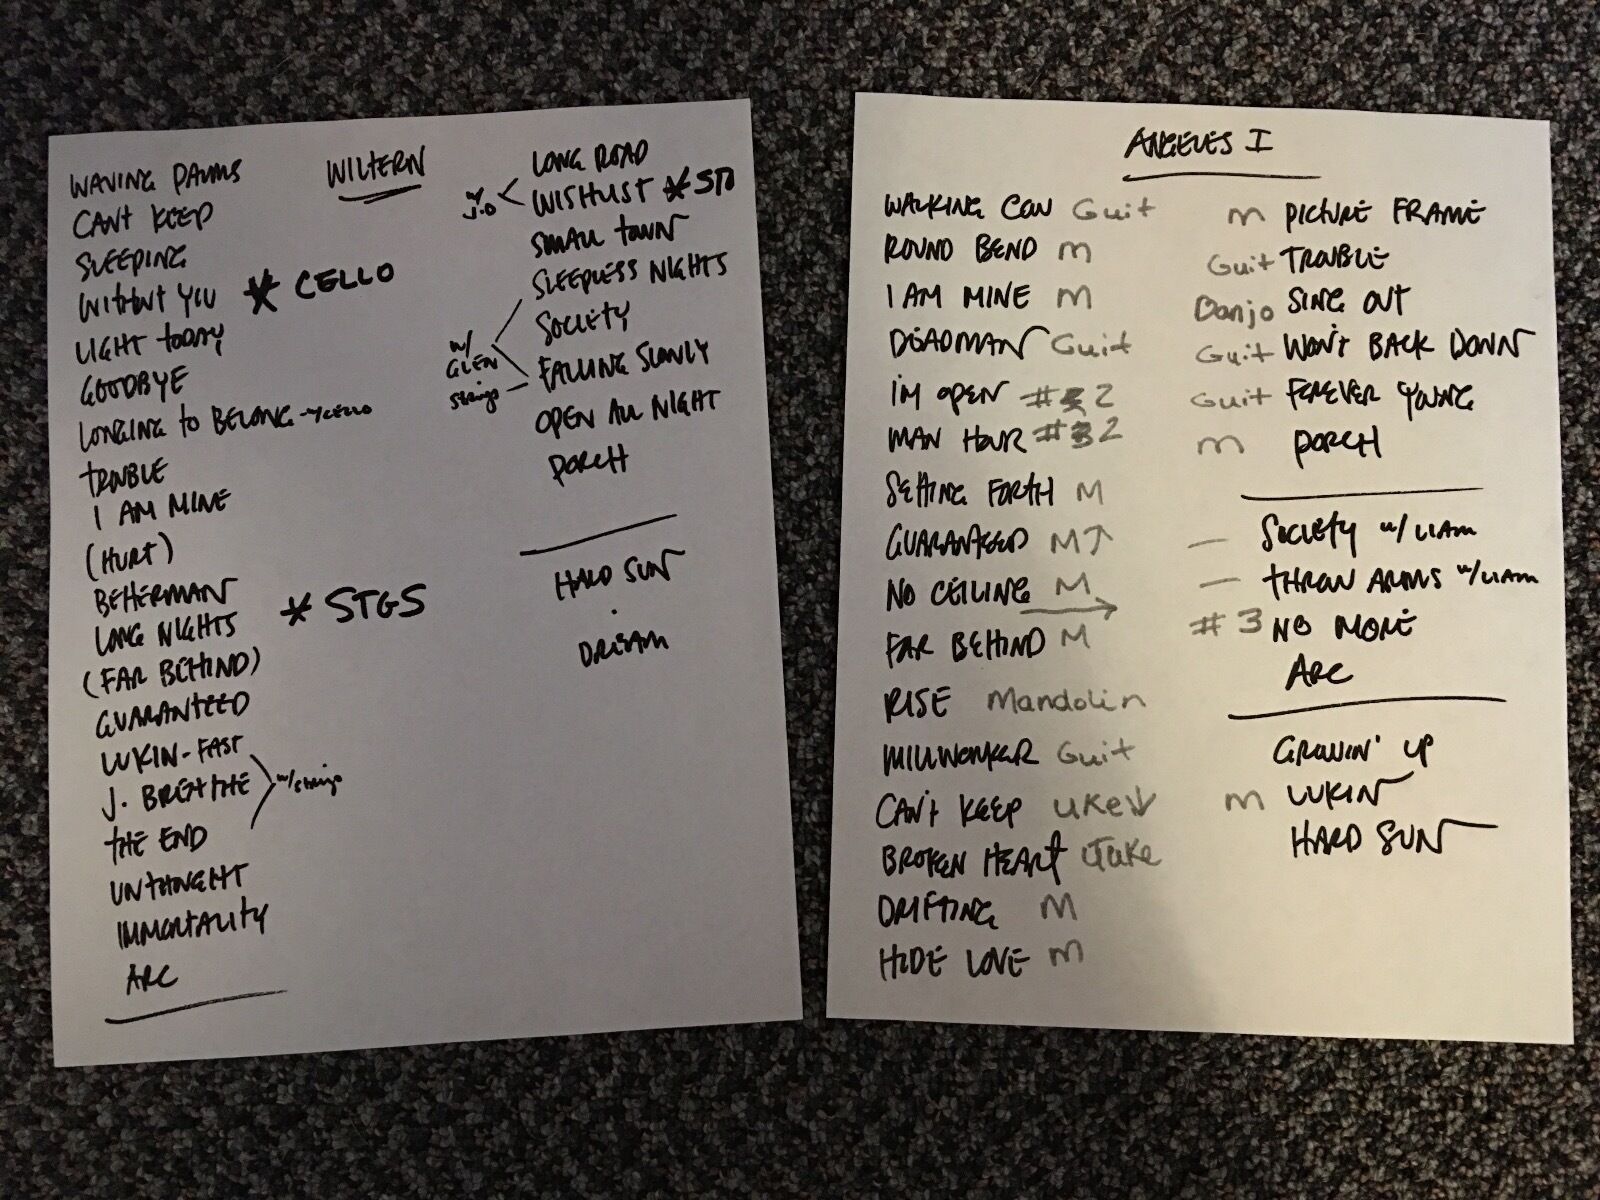 WILTERN
WAVING PALMS
CAN'T KEEP
SLEEPING
WITHOUT YOU * CELLO
LIGHT TODAY
GOODBYE
LONGING TO BELONG - w/CELLO
TROUBLE
I AM MINE
(HURT)
BETTERMAN
LONG NIGHTS * STGS
(FAR BEHIND)
GUARANTEED
LUKIN - FAST
J. BREATHE w/strings
THE END
UNTHOUGHT
IMMORTALITY
ARC
LONG ROAD
w/ J.O WISHLIST * STG
SMALL TOWN
SLEEPLESS NIGHTS
SOCIETY
w/ GLEN
strings FALLING SLOWLY
OPEN ALL NIGHT
PORCH
HARD SUN
DREAM
ANGELES I
WALKING COW Guit
ROUND BEND M
I AM MINE M
DEADMAN Guit
I'M OPEN # 2
MAN HOUR # 2
SETTING FORTH M
GUARANTEED M↑
NO CEILING M
FAR BEHIND M
RISE Mandolin
MILLWORKER Guit
CAN'T KEEP UKE↓
BROKEN HEART Uke
DRIFTING M
HIDE LOVE M
M PICTURE FRAME
Guit TROUBLE
Banjo SING OUT
Guit WON'T BACK DOWN
Guit FOREVER YOUNG
M PORCH
— SOCIETY w/ LIAM
— THROW ARMS w/LIAM
# 3 NO MORE
ARC
GROWIN' UP
M LUKIN
HARD SUN